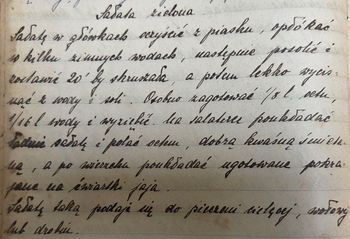 Sałata zielona
Sałatę w główkach oczyścić z piasku, opłókać
w kilku zimnych wodach, następnie posolić i
zostawić 20' by skruszała, a potem lekko wycis-
nąć z wody i soli. Osobno zagotować 1/8 l. octu,
1/16 l wody i wyziębić. Na salaterce poukładać
ładnie sałatę i polać octem, dobrą kwaśną śmieta-
ną, a po wierzchu poukładać ugotowane pokra-
jane na ćwiartki jaja.
Sałatę taką podaje się do pieczeni cielęcej, wołowej
lub drobiu.